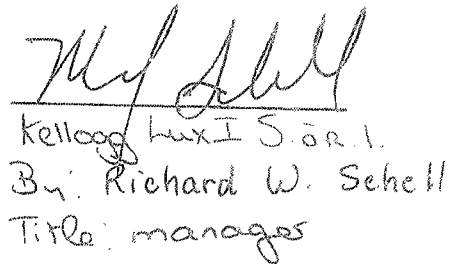 Kellogg Lux I S.àR.l.
By: Richard W. Schell
Title: manager